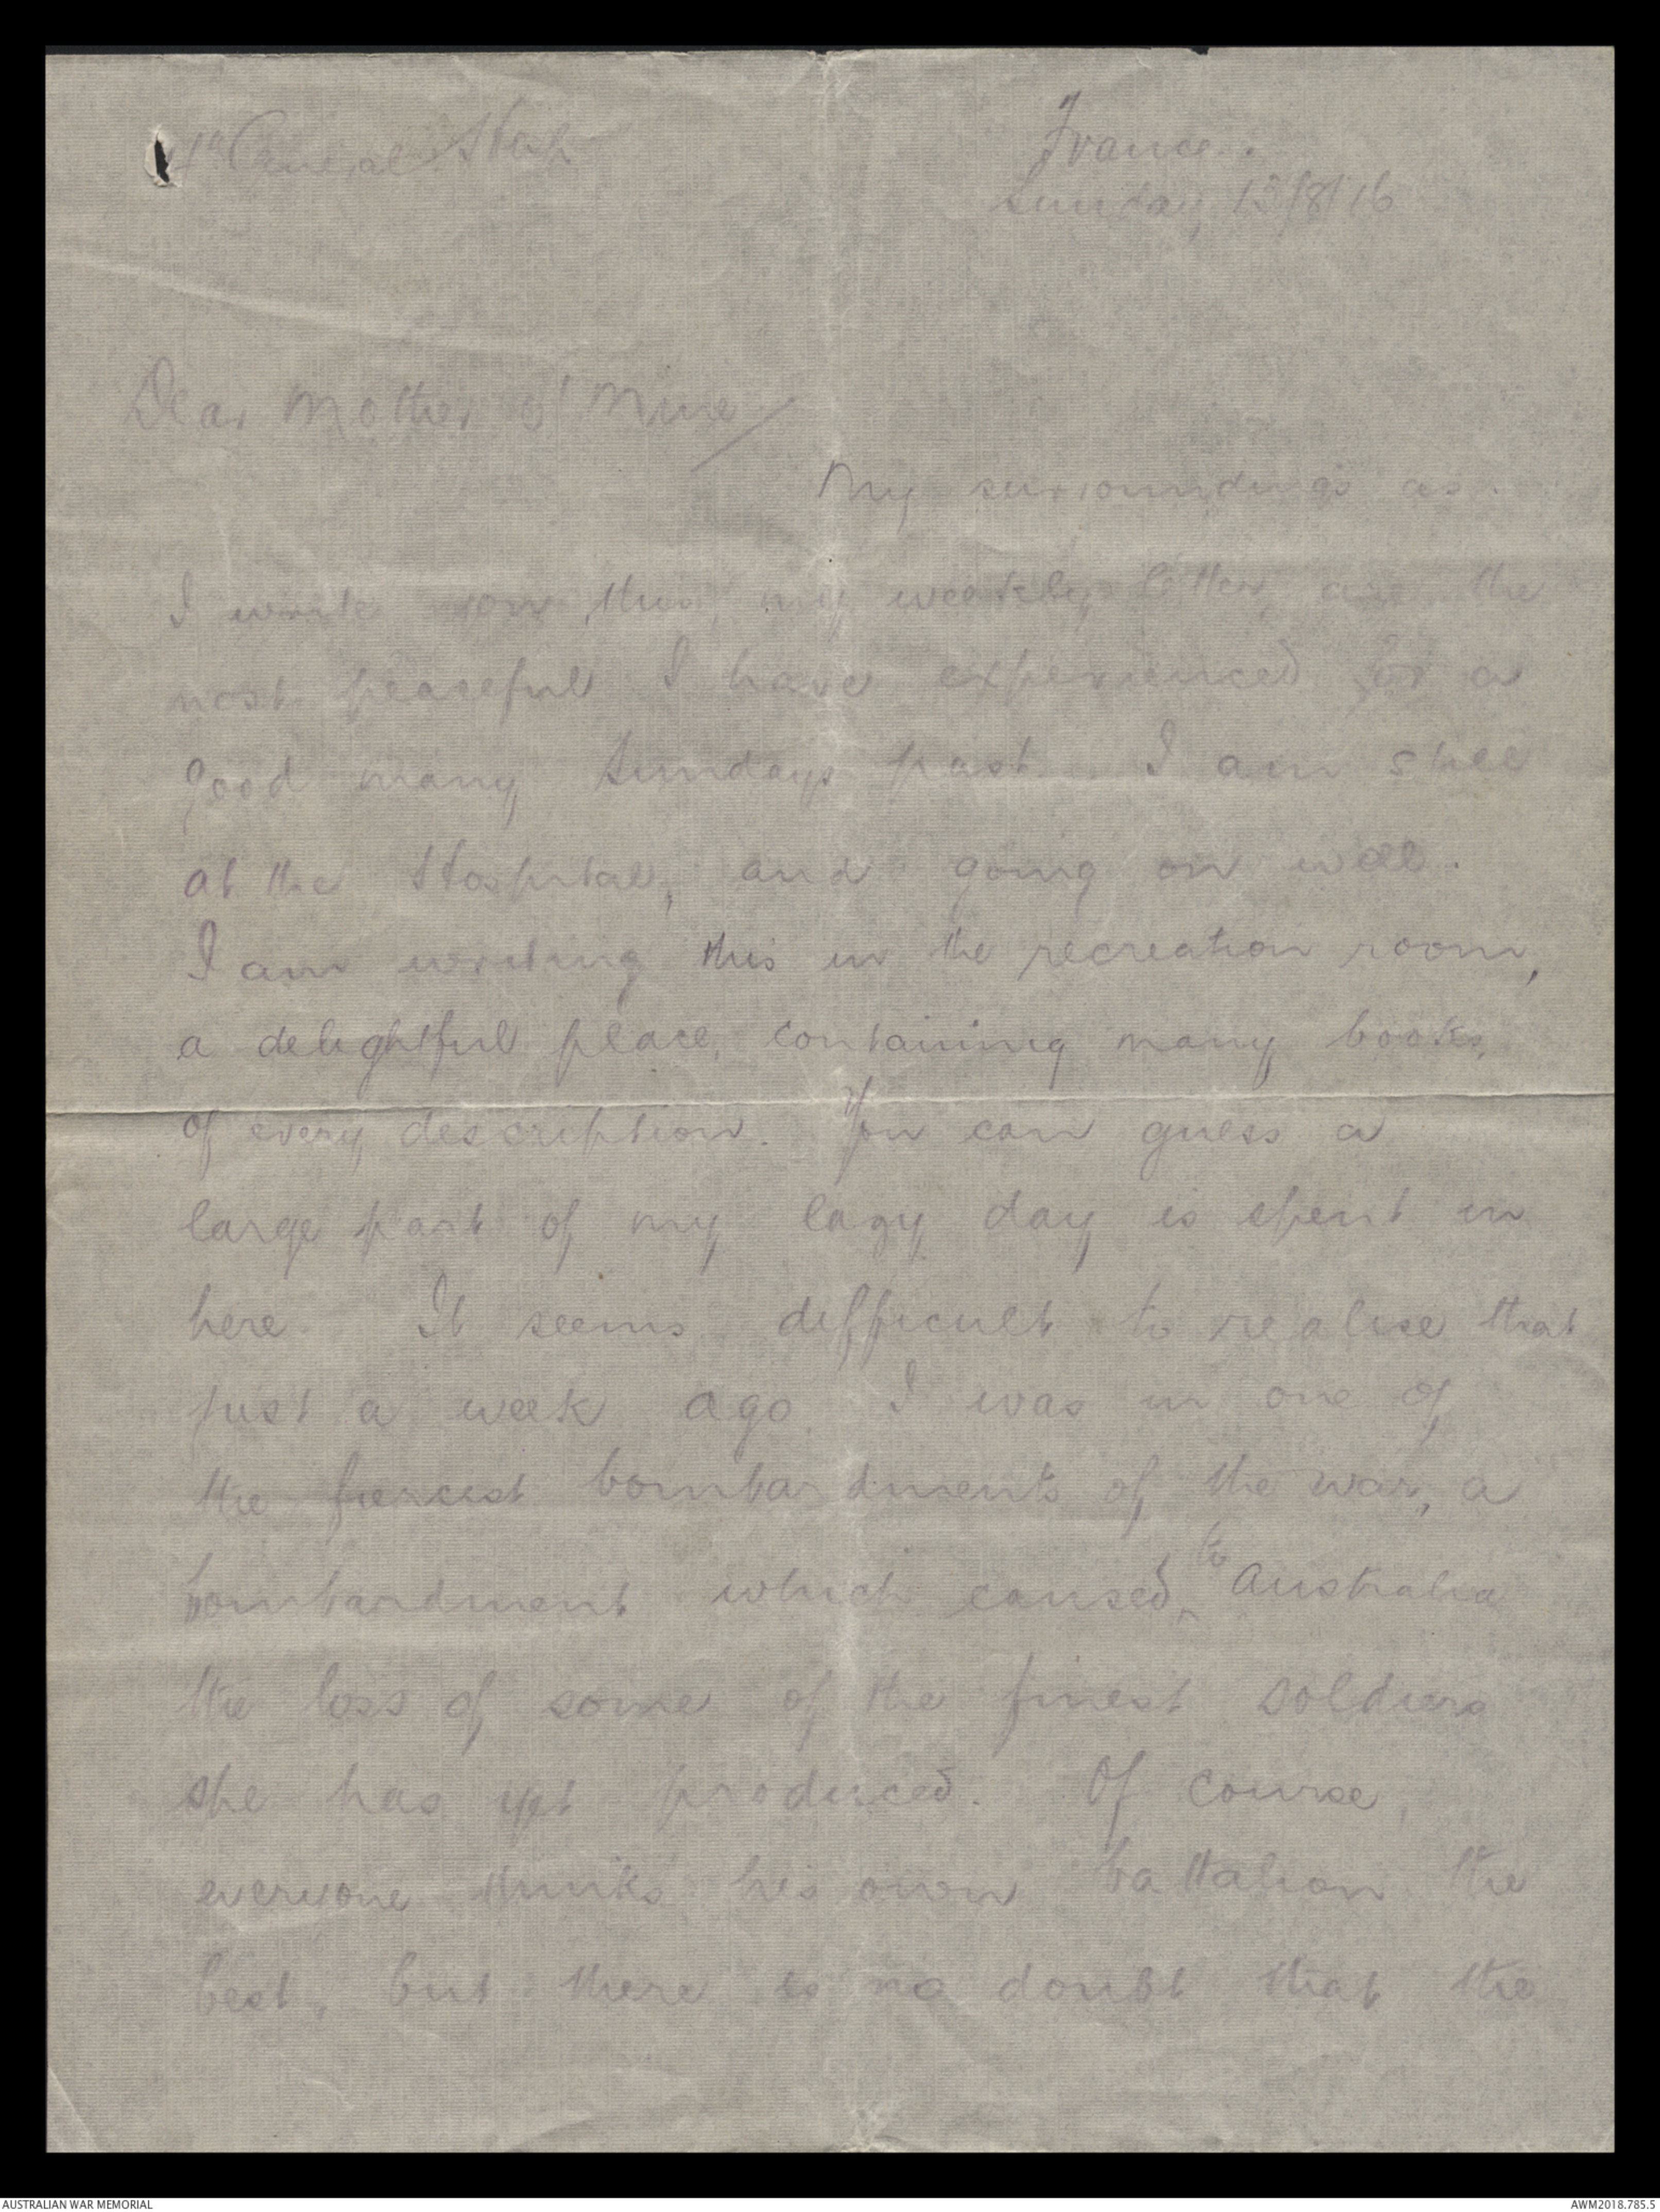 4th General Hosp
France.
Sunday 13/8/16
Dear Mother o' Mine/
My surroundings as
I write you this, my weekly letter, are the
most peaceful I have experienced for a
good many Sundays past. I am still
at the Hospital, and going on well.
I am writing this in the recreation room,
a delightful place, containing many books,
of every description. You can guess a
large part of my lazy day is spent in
here. It seems difficult to realise that
just a week ago I was in one of
the fiercest bombardments of the war, a
bombardment which caused ^to Australia
the loss of some of the finest soldiers
she has yet produced. Of course,
everyone thinks his own battalion the
best, but there is no doubt that the
AUSTRALIAN WAR MEMORIAL
AWM2018.785.5